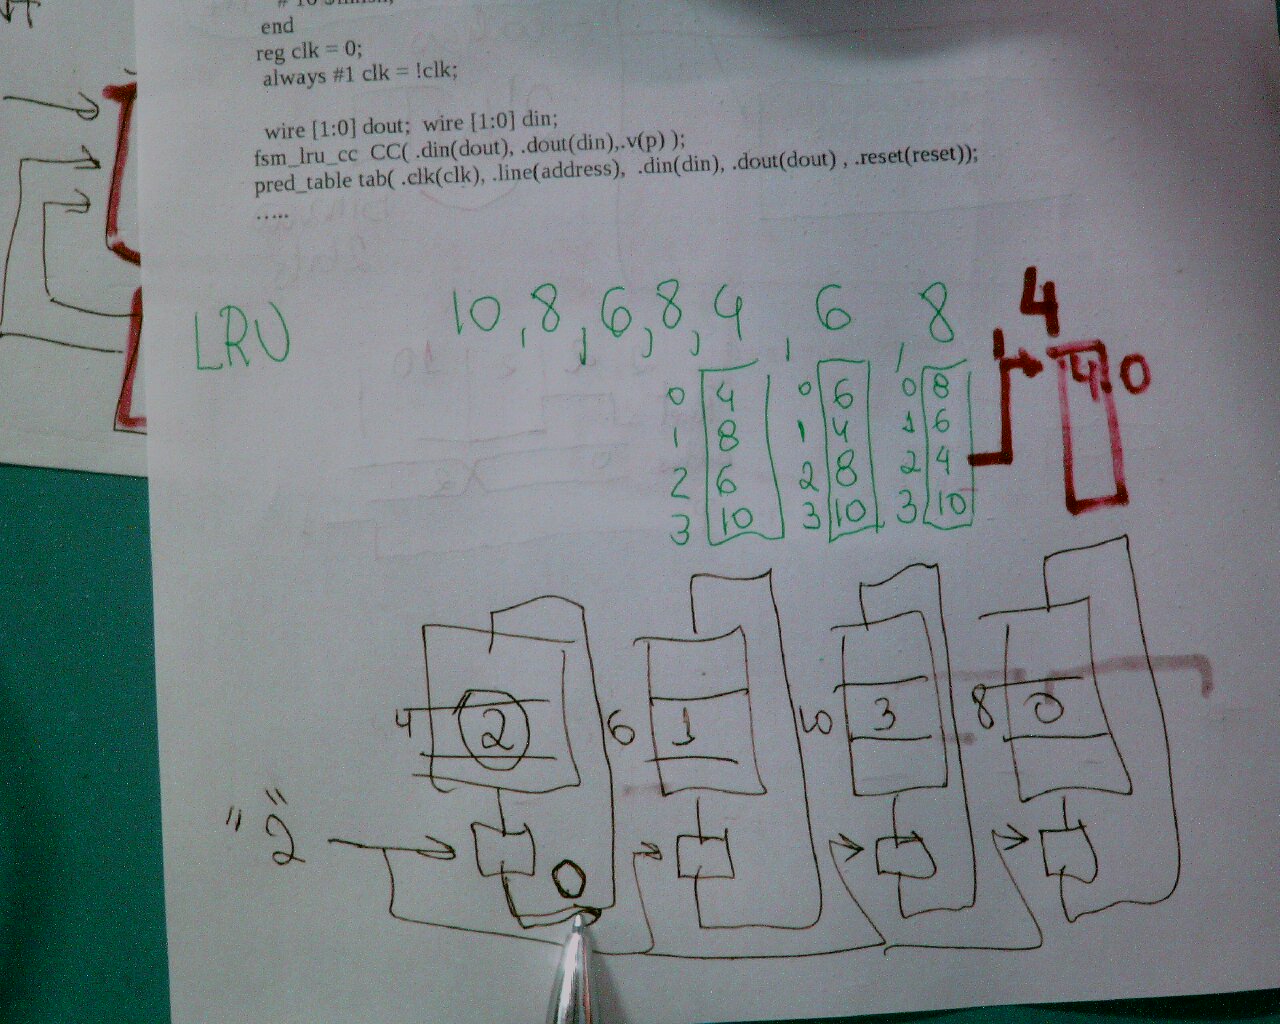 end
reg clk = 0;
always #1 clk = !clk;
wire [1:0] dout; wire [1:0] din;
fsm_lru_cc CC( .din(dout), .dout(din),.v(p) );
pred_table tab( .clk(clk), .line(address), .din(din), .dout(dout) , .reset(reset));
.....
LRU 10, 8, 6, 8, 4, 6, 8 4
0 4 0 6 0 8 4 0
1 8 1 4 1 6
2 6 2 8 2 4
3 10 3 10 3 10
4 2 6 1 10 3 8 0
"2"
0